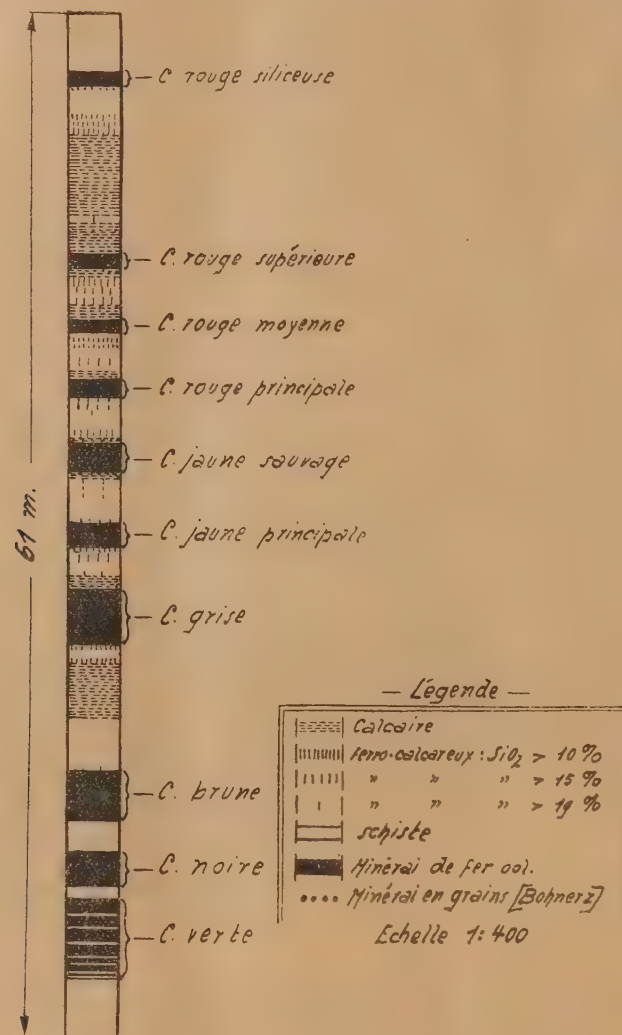 C. rouge siliceuse
C. rouge supérieure
C. rouge moyenne
C. rouge principale
C. jaune sauvage
C. jaune principale
C. grise
C. brune
C. noire
C. verte
61 m.
— Légende —
Calcaire
Ferro-calcareux : SiO₂ > 10 %
" " " > 15 %
" " " > 19 %
schiste
Minérai de fer ool.
Minérai en grains [Bohnerz]
Echelle 1:400